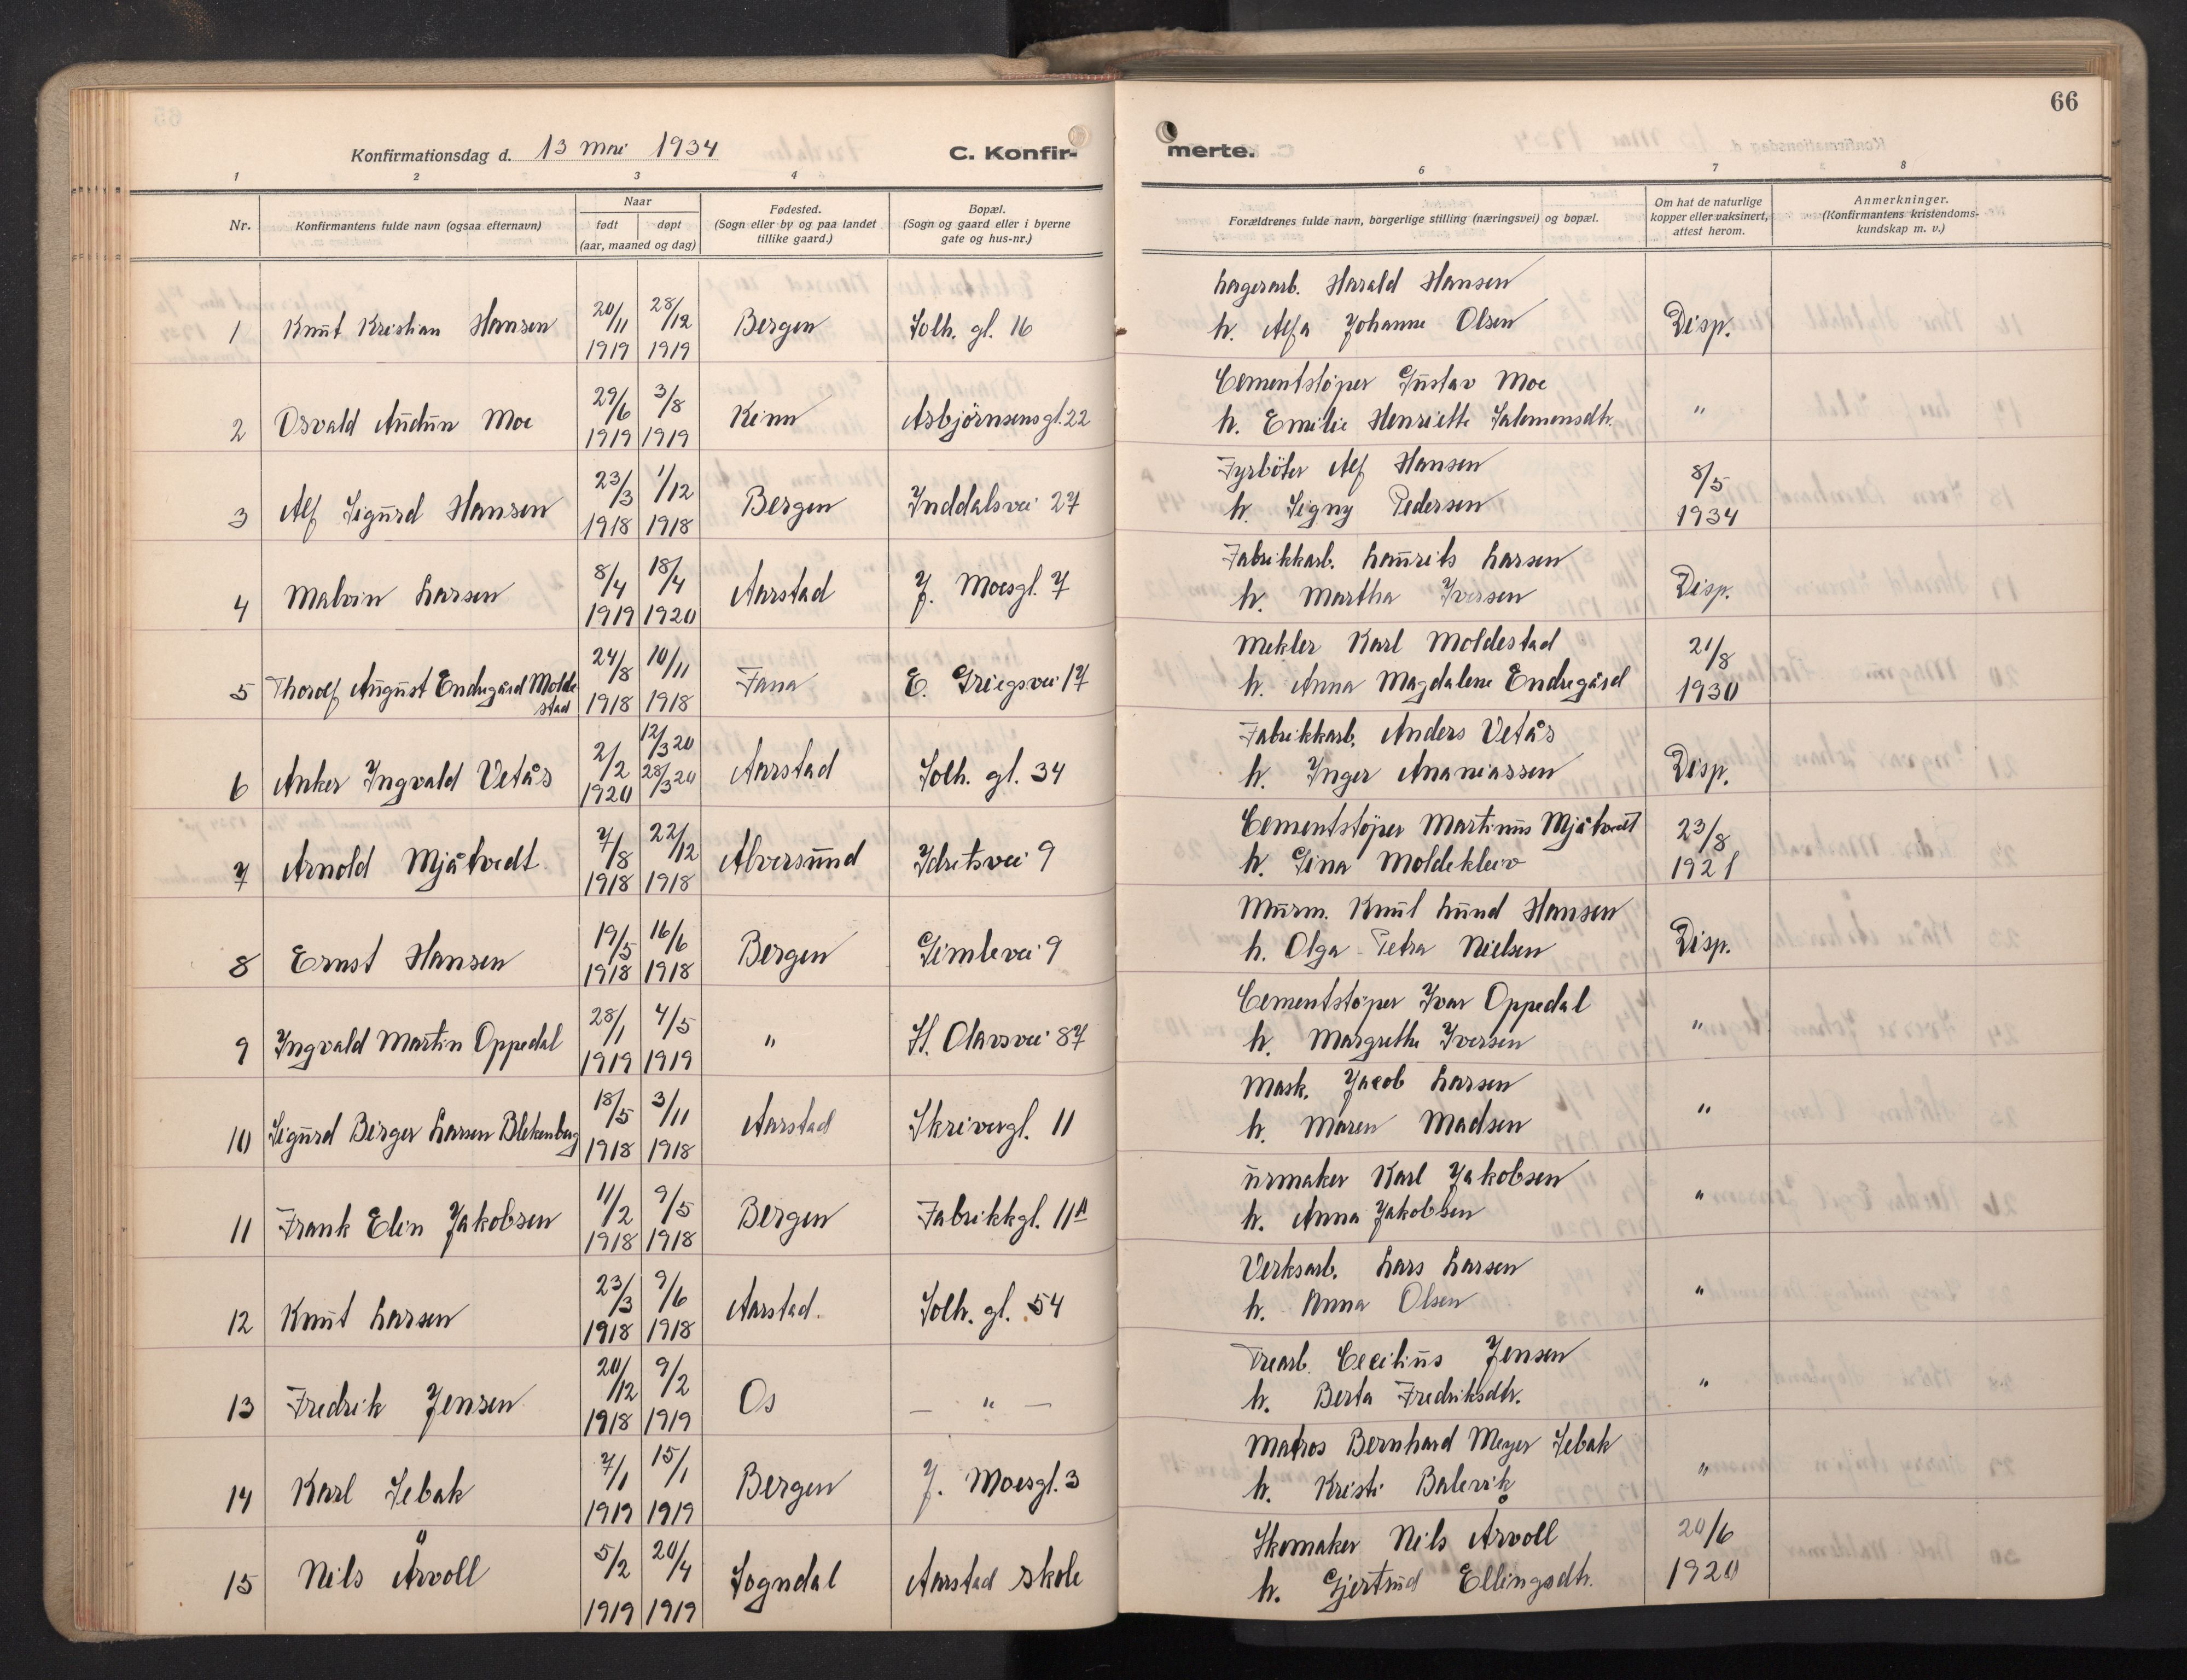 66
Konfirmationsdag d. 13 Mai 1934
C. Konfir-
merte.
1 2 3 4 6 7 8
Nr.
Konfirmantens fulde navn (ogsaa efternavn)
Naar
født døpt
(aar, maaned og dag)
Fødested.
(Sogn eller by og paa landet
tillike gaard.)
Bopæl.
(Sogn og gaard eller i byerne
gate og hus-nr.)
Forældrenes fulde navn, borgerlige stilling (næringsvei) og bopæl.
Om hat de naturlige
kopper eller vaksinert,
attest herom.
Anmerkninger.
(Konfirmantens kristendoms-
kundskap m. v.)
Lagerarb. Harald Hansen
1 Knut Kristian Hansen 20/11 28/12 Bergen Solh. gt. 16 h. Alfa Johanne Olsen Disp.
1919 1919
Cementstöper Gustav Moe
2 Osvald Audun Moe 29/6 3/8 Kinn Asbjörnsens gt. 22 h. Emilie Henriette Salomonsdtr. "
1919 1919
Fyrböter Alf Hansen
3 Alf Sigurd Hansen 23/3 1/12 Bergen Inddalsvei 27 h. Signy Pedersen 8/5
1918 1918 1934
Fabrikkarb. Lauritz Larsen
4 Malvin Larsen 8/4 18/4 Aarstad J. Moesgt. 7 h. Martha Iversen Disp.
1919 1920
Mekler Karl Moldestad 21/8
5 Thorolf August Endregård Molde 24/8 10/11 Fana E. Griegsvei 17 h. Anna Magdalene Endregård 1930
stad 1918 1918
Fabrikkarb. Anders Vetås
12/3 20
6 Anker Ingvald Vetås 2/2 28/3 20 Aarstad Solh. gt. 34 h. Inger Ananiassen Disp.
1920
Cementstöper Martinus Mjåtvedt 23/8
7 Arnold Mjåtvedt 7/8 22/12 Alversund Idretsvei 9 h. Gina Moldekleiv 1921
1918 1918
Murm. Knut Lund Hansen
8 Ernst Hansen 19/5 16/6 Bergen Gimlevei 9 h. Olga Petra Nielsen Disp.
1918 1918
Cementstöper Ivar Oppedal
9 Ingvald Martin Oppedal 28/1 4/5 " St. Olavsvei 87 h. Margrethe Iversen "
1919 1919
Mask. Jacob Larsen
10 Sigurd Berger Larsen Blekenberg 18/5 3/11 Aarstad Skrivergt. 11 h. Maren Madsen "
1918 1918
Urmaker Karl Jakobsen
11 Frank Elin Jakobsen 11/2 9/5 Bergen Fabrikkgt. 11 A h. Anna Jakobsen "
1918 1918
Verksarb. Lars Larsen
12 Knut Larsen 23/3 9/6 Aarstad. Solh. gt. 54 h. Anna Olsen "
1918 1918
Trearb. Cecilius Jensen
13 Fredrik Jensen 20/12 9/2 Os — " — h. Berta Fredriksdtr. "
1918 1919
Matros Bernhard Meyer Sebak
14 Karl Sebak 7/1 15/1 Bergen J. Moesgt. 3 h. Kristi Balevik "
1919 1919
Skomaker Nils Årvoll 20/6
15 Nils Årvoll 5/2 20/4 Sogndal Aarstad skole h. Gjertrud Ellingsdtr. 1920
1919 1919